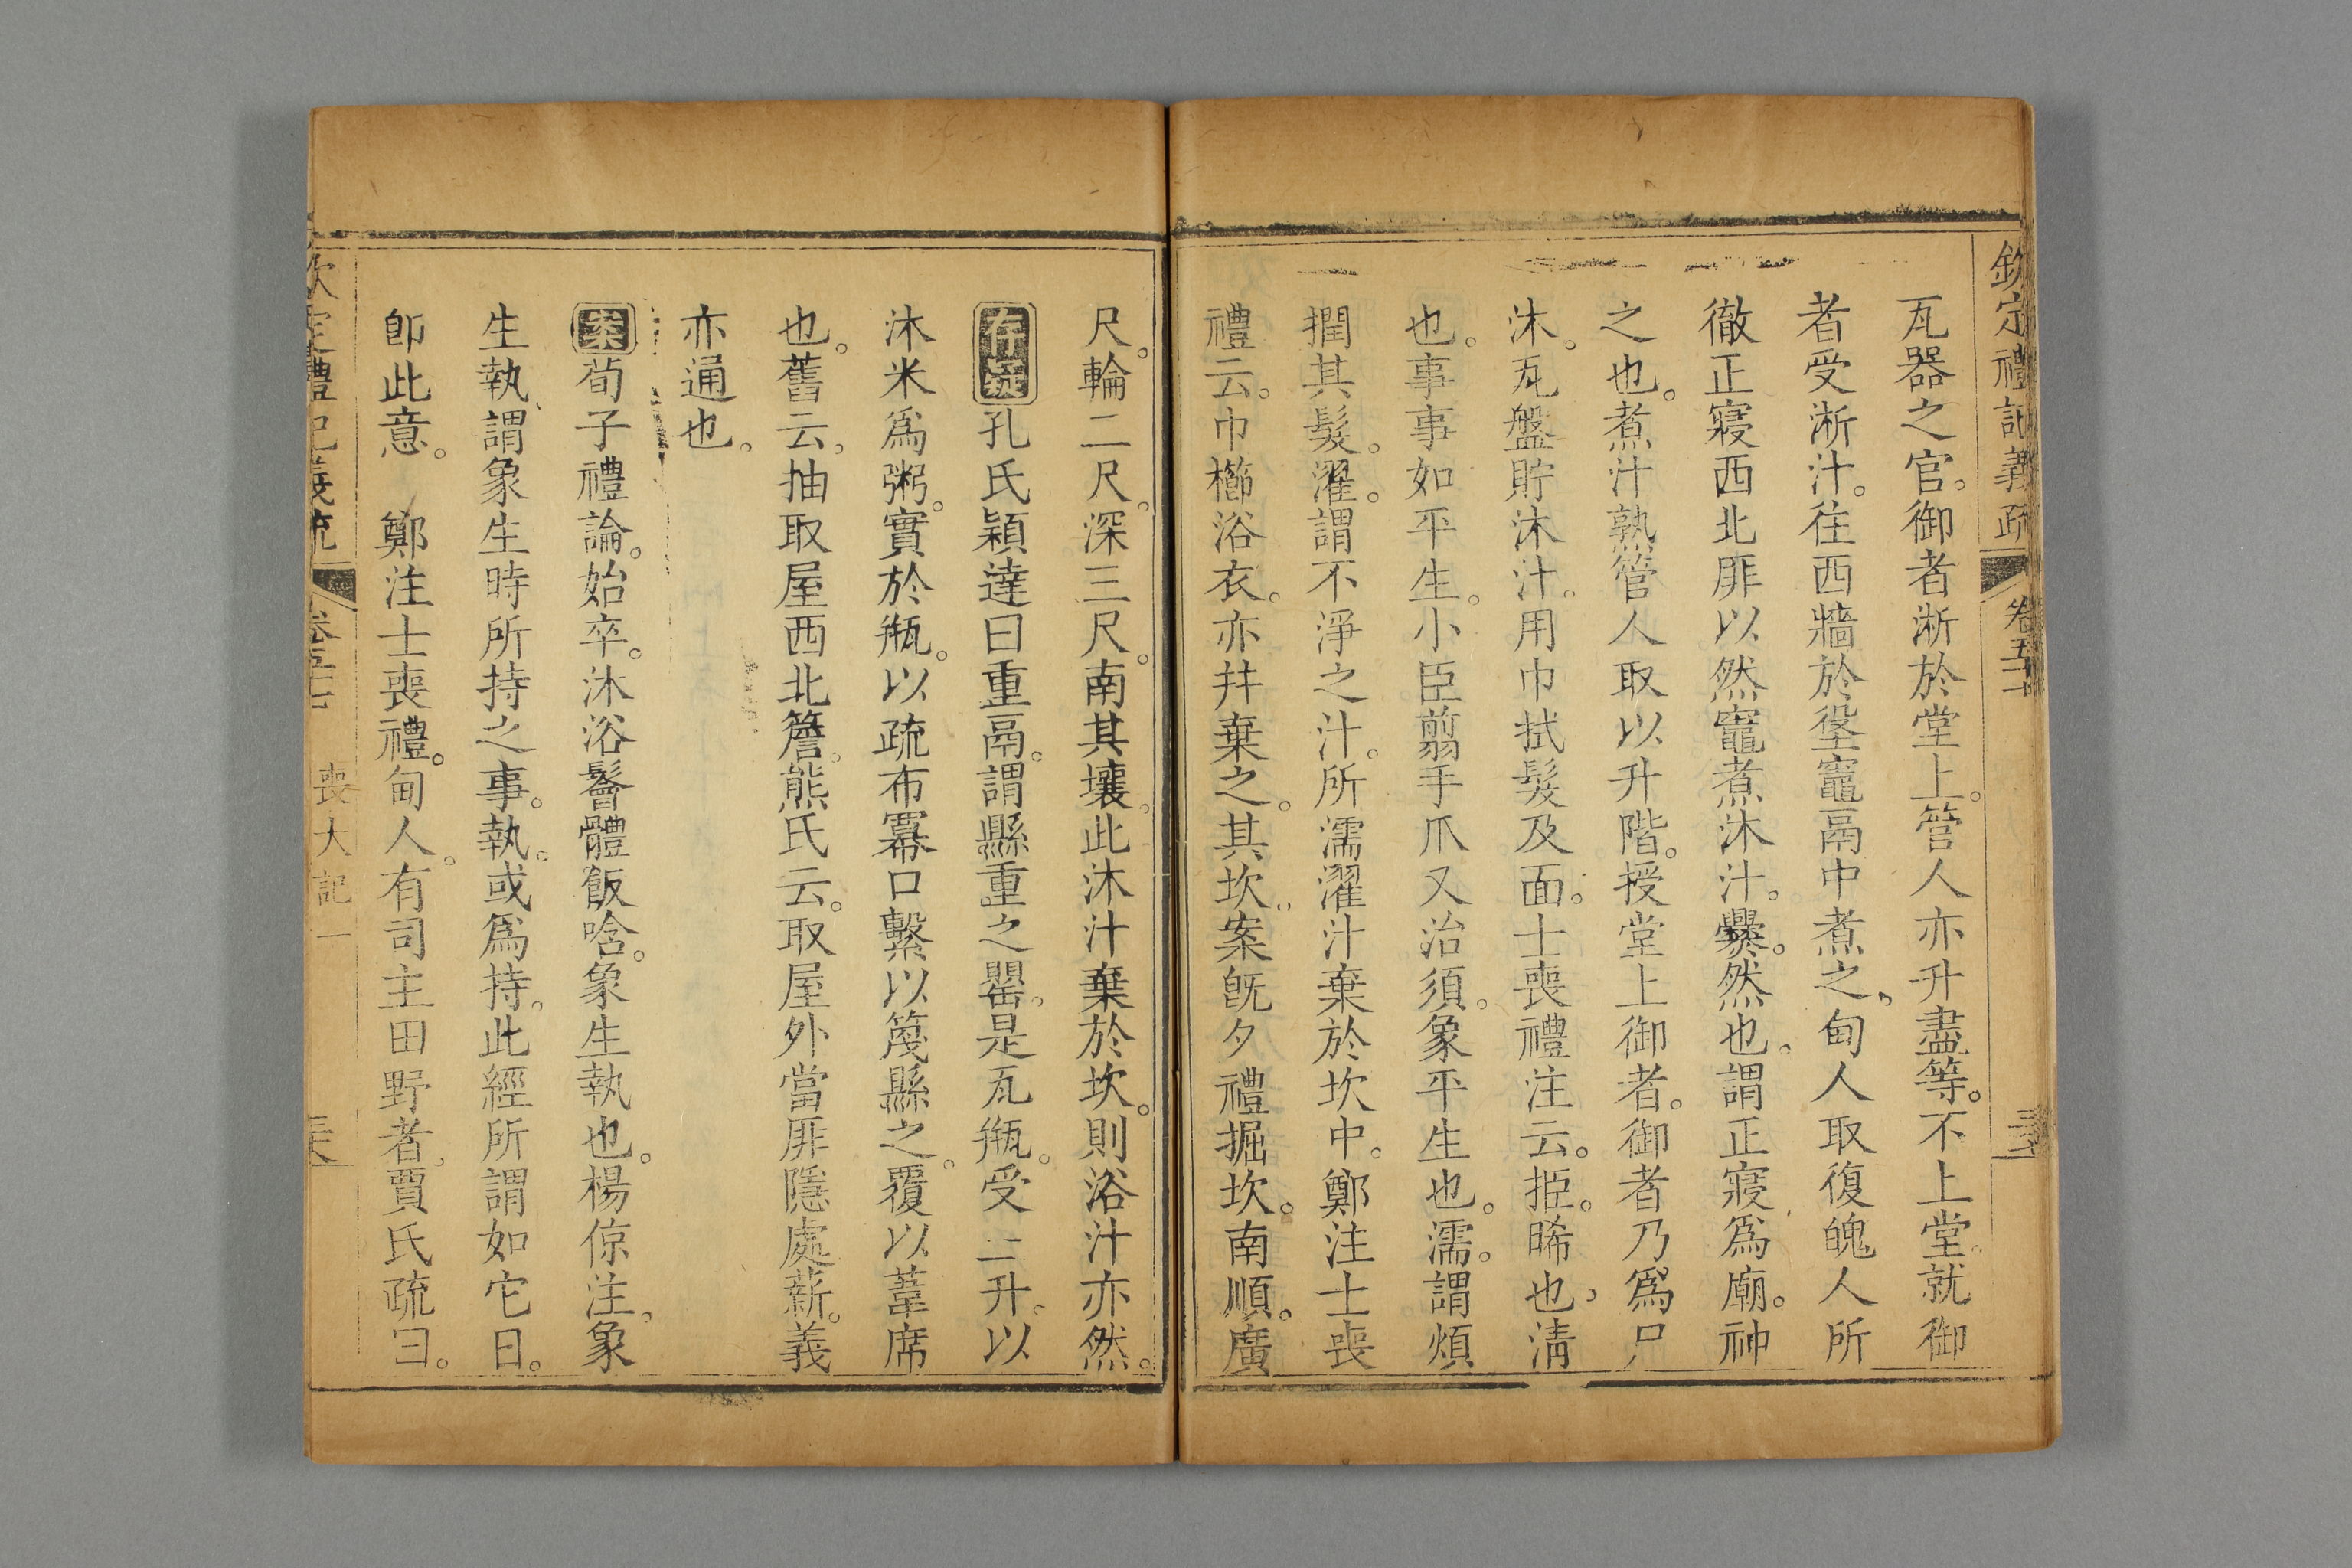 欽定禮記義疏 卷五十七
瓦器之官。御者淅於堂上。管人亦升盡等。不上堂。就御
者受淅汁。往西牆於垼竈鬲中煮之。甸人取復魄人所
徹正寢西北厞以然竈煮沐汁。爨。然也。謂正寢爲廟。神
之也。煮汁孰管人取以升階。授堂上御者。御者乃爲尸
沐。瓦盤貯沐汁。用巾拭髮及面。士喪禮注云。挋。晞也。淸
也。事事如平生。小臣翦手爪又治須。象平生也。濡。謂煩
撋其髮。濯。謂不淨之汁。所濡濯汁棄於坎中。鄭注士喪
禮云。巾櫛浴衣。亦幷棄之。其坎。案旣夕禮掘坎。南順。廣
尺。輪二尺。深三尺。南其壤。此沐汁棄於坎。則浴汁亦然。
存疑孔氏穎達曰重鬲。謂縣重之罌。是瓦甁。受二升。以
沐米爲粥。實於甁。以疏布冪口繫以篾縣之。覆以葦席
也。舊云。抽取屋西北簷。熊氏云。取屋外當厞隱處薪。義
亦通也。
案荀子禮論。始卒。沐浴鬠體飯唅。象生執也。楊倞注。象
生執。謂象生時所持之事。執。或爲持。此經所謂如它日。
卽此意。 鄭注士喪禮。甸人。有司主田野者。賈氏疏曰。
喪大記一